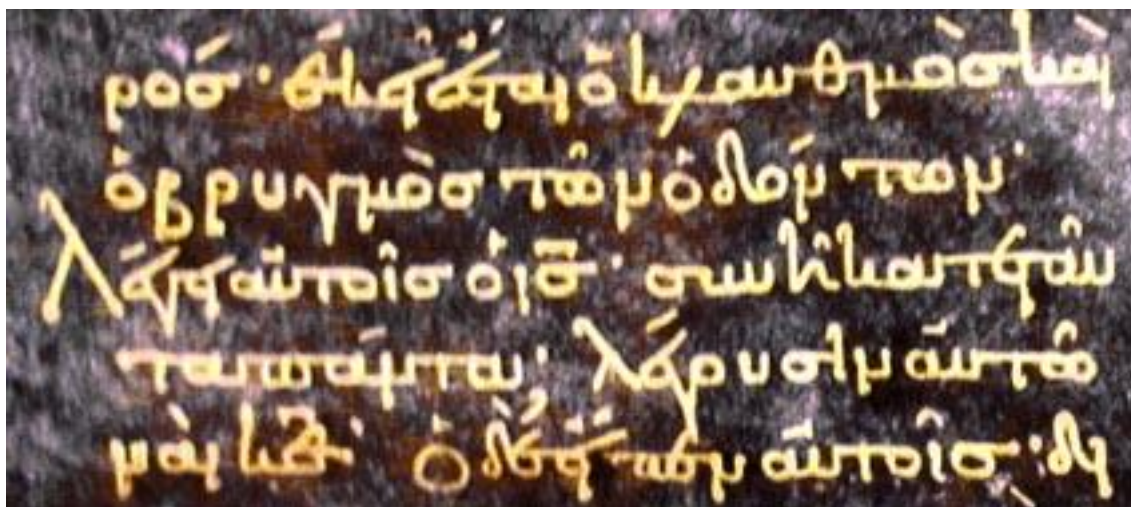 ρός· ἐκεῖ ἔσται ὁ κλαυθμὸς καὶ
ὁ βρυγμὸς τῶν ὀδόντων·
λέγει αὐτοῖς ὁ ι̅ς̅· συνήκατε ταῦ
τα πάντα; λέγουσιν αὐτῶ
ναὶ κ̅ε̅· ὁ δὲ εἶπεν αὐτοῖς· δι